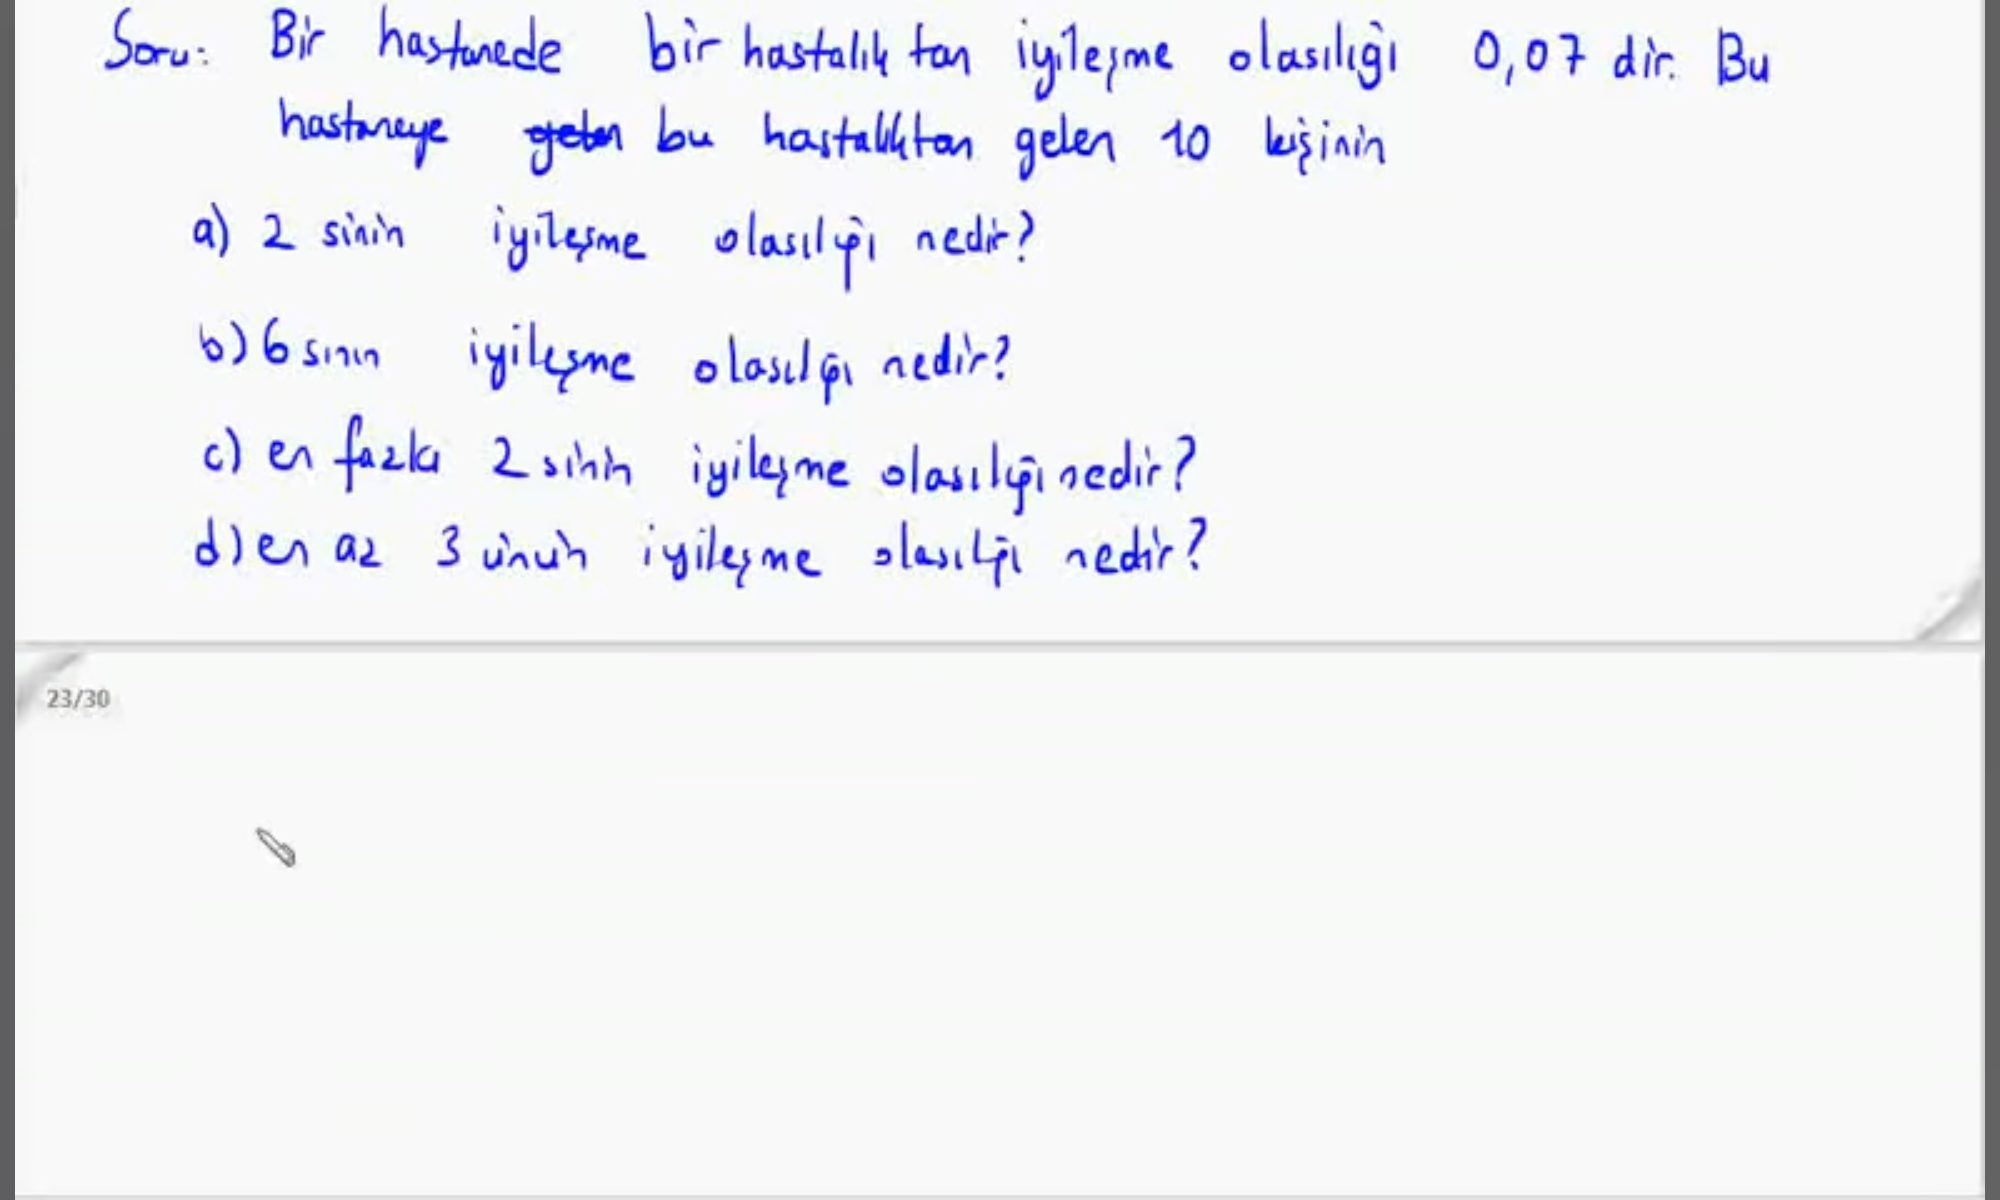 Soru: Bir hastanede bir hastalıktan iyileşme olasılığı 0,07 dir. Bu
hastaneye gelen bu hastalıktan gelen 10 kişinin
a) 2 sinin iyileşme olasılığı nedir?
b) 6 sının iyileşme olasılığı nedir?
c) en fazla 2 sinin iyileşme olasılığı nedir?
d) en az 3 ünün iyileşme olasılığı nedir?
23/30